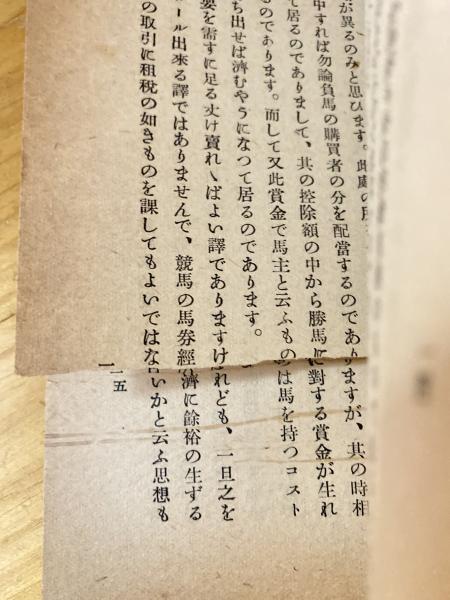 が異るのみと思ひます。此處の
中すれば勿論負馬の購買者の分を配當するのでありますが、其の時相
て居るのでありまして、其の控除額の中から勝馬に對する賞金が生れ
のであります。而して又此賞金で馬主と云ふものは馬を持つコスト
ち出せば濟むやうになつて居るのであります。
要を需すに足る丈け賣れゝばよい譯でありますけれども、一旦之を
ール出來る譯ではありませんで、競馬の馬券經濟に餘裕の生ずる
の取引に租税の如きものを課してもよいではないかと云ふ思想も
一一五